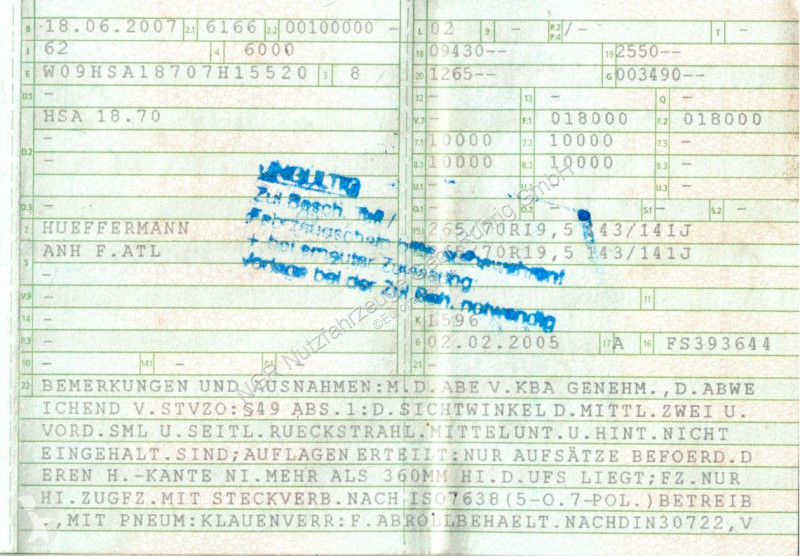 B 18.06.2007 2.1 6166 2.2 00100000 - L 02 9 - P.2 P.4 /- T -
J 62 4 6000 18 09430-- 19 2550--
E W09HSA18707H15520 3 8 20 1265-- G 003490--
D.1 - 12 - 13 - Q -
HSA 18.70 V.7 - F.1 018000 F.2 018000
- 7.1 10000 7.2 10000 7.3 -
D.2 8.1 10000 8.2 10000 8.3 -
- U.1 - U.2 - U.3 -
D.3 - O.1 - O.2 - S.1 - S.2
2 HUEFFERMANN 15.1 265/70R19,5 143/141J
ANH F.ATL 265/70R19,5 143/141J
5 - -
V.9 - - 11
14 - K L596
P.3 - 6 02.02.2005 17 A 16 FS393644
10 - 14.1 - P.1 - 21 -
22 BEMERKUNGEN UND AUSNAHMEN:M.D.ABE V.KBA GENEHM.,D.ABWE
ICHEND V.STVZO:§49 ABS.1:D.SICHTWINKEL D.MITTL.ZWEI U.
VORD.SML U.SEITL.RUECKSTRAHL.MITTELUNT.U.HINT.NICHT
EINGEHALT.SIND;AUFLAGEN ERTEILT:NUR AUFSÄTZE BEFOERD.D
EREN H.-KANTE NI.MEHR ALS 360MM HI.D.UFS LIEGT;FZ.NUR
HI.ZUGFZ.MIT STECKVERB.NACH ISO7638(5-O.7-POL.)BETREIB
.,MIT PNEUM:KLAUENVERR:F.ABROLLBEHAELT.NACHDIN30722,V
UNGÜLTIG
Zul.Besch. Teil I
(Fahrzeugschein) bitte aufbewahren!
+ bei erneuter Zulassung
Vorlage bei der Zul.Beh. notwendig
Nutzfahrzeuge GmbH